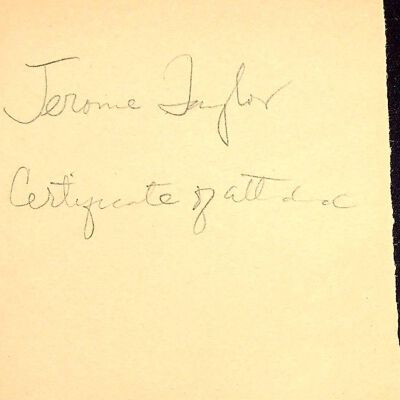 Jerome Taylor
Certificate of